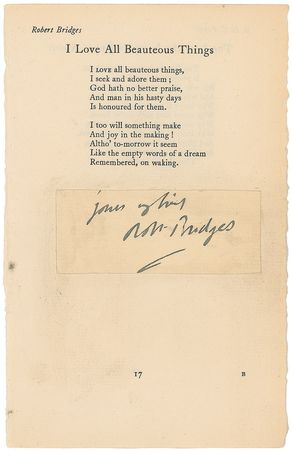 Robert Bridges
I Love All Beauteous Things
I LOVE all beauteous things,
I seek and adore them ;
God hath no better praise,
And man in his hasty days
Is honoured for them.
I too will something make
And joy in the making !
Altho' to-morrow it seem
Like the empty words of a dream
Remembered, on waking.
yours
Robt. Bridges
17
B